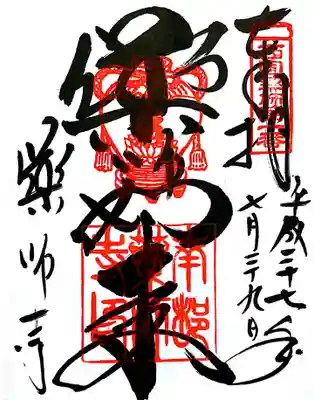 奉拝
平成二十七年
七月二十九日
薬師如来
薬師寺